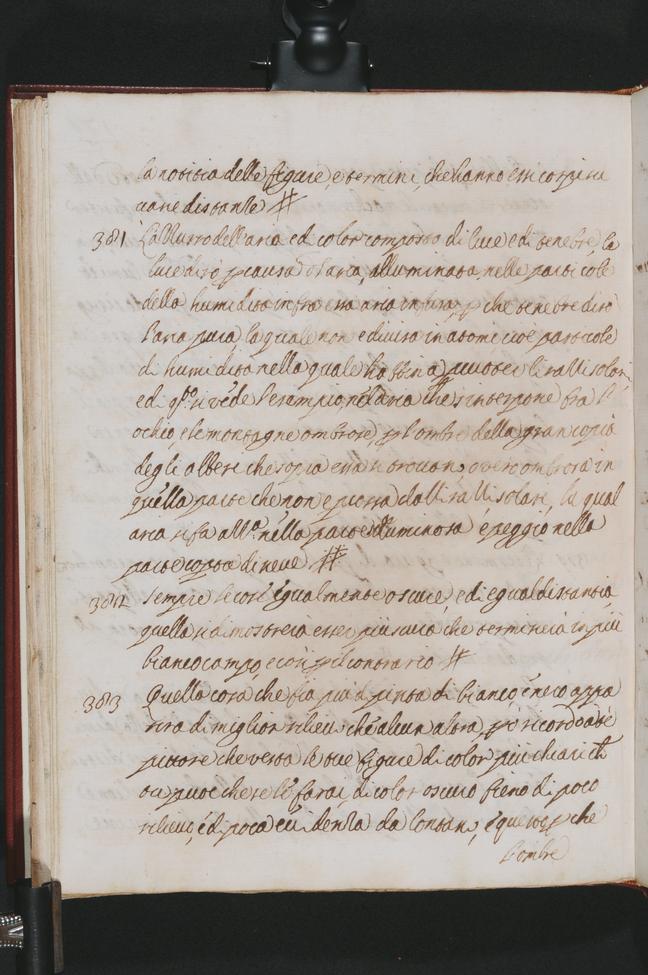 la notitia delle figure, e termini, che hanno essi corpi in
varie distantie #
381 L'Azzurro dell'aria è di color composto di luce e di tenebre, la
luce dirò p causa dell'aria, illuminata nelle particole
della humidità infra essa aria infusa, p che tenebre dirò
l'aria pura la quale non è divisa in atomi cioè particole
di humidità nella quale habbino à percuoter li ralli solari
e di qto si vede l'esempio nell'aria che s'interpone fra l'
ochio e le montagne ombrose, p l'ombre della gran copia
degli alberi che sopra essa si trovano, overo ombrosa in
quella parte che non è percossa dalli ralli solari, la qual
aria si fa azza nella parte luminosa è peggio nella
parte coperta di neve #
382 Sempre le cose egualmente oscure, e di egual distantia,
quella si dimostrerà esser più scura che terminerà in più
bianco campo e così p il contrario #
383 Quella cosa, che fia più dipinta di bianco, e nero appa
rirà di miglior rilievo che alcun altra, pò ricordo à te
pittore che vesta le tue figure di color più chiari che
tu puoi che se le farai di color oscuro fieno di poco
rilievo, e di poca evidentia da lontano, e questo p che
l'ombre